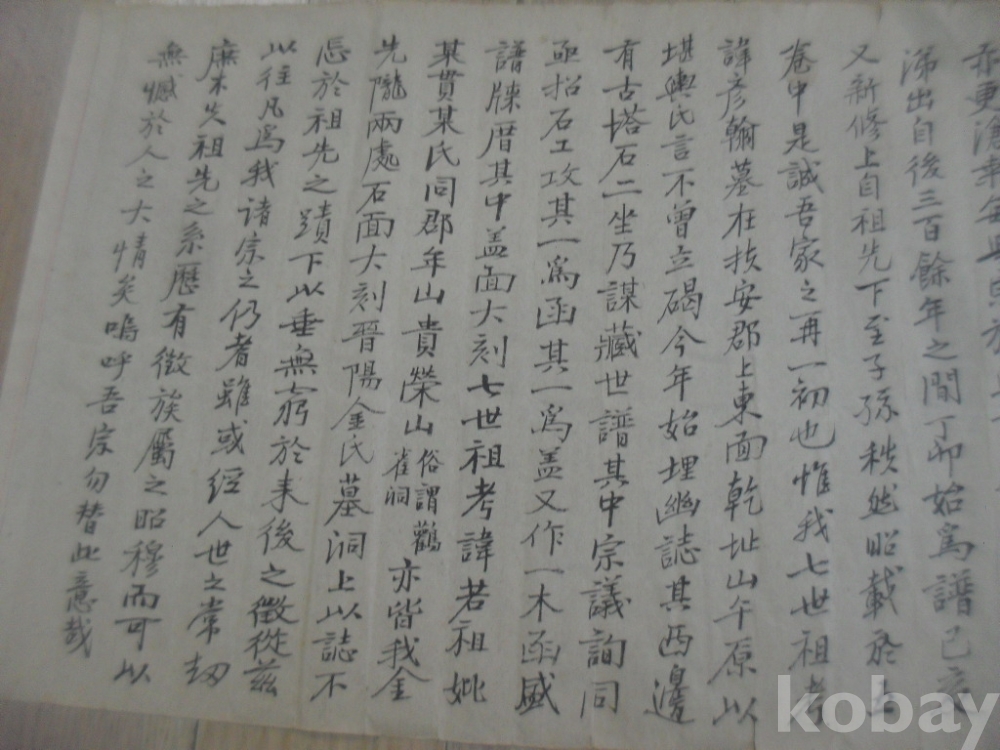 亦更滄桑
涕出自後三百餘年之間丁卯始爲譜己亥
又新修上自祖先下至子孫秩然昭載於上
卷中是誠吾家之再一初也惟我七世祖考
諱彦翰墓在扶安郡上東面乾址山午原以
堪輿氏言不曾立碣今年始埋幽誌其西邊
有古塔石二坐乃謀藏世譜其中宗議詢同
亟招石工攻其一爲函其一爲盖又作一木函盛
譜牒厝其中盖面大刻七世祖考諱若祖妣
某貫某氏同郡年山貴榮山俗謂鸛雀洞亦皆我金
先隴兩處石面大刻晉陽金氏墓洞上以誌不
忘於祖先之蹟下以垂無窮於来後之徵從茲
以往凡爲我诸宗之仍者雖或經人世之常劫
庶不失祖先之系歷有徵族屬之昭穆而可以
無憾於人之大情矣嗚呼吾宗勿替此意哉
kobay